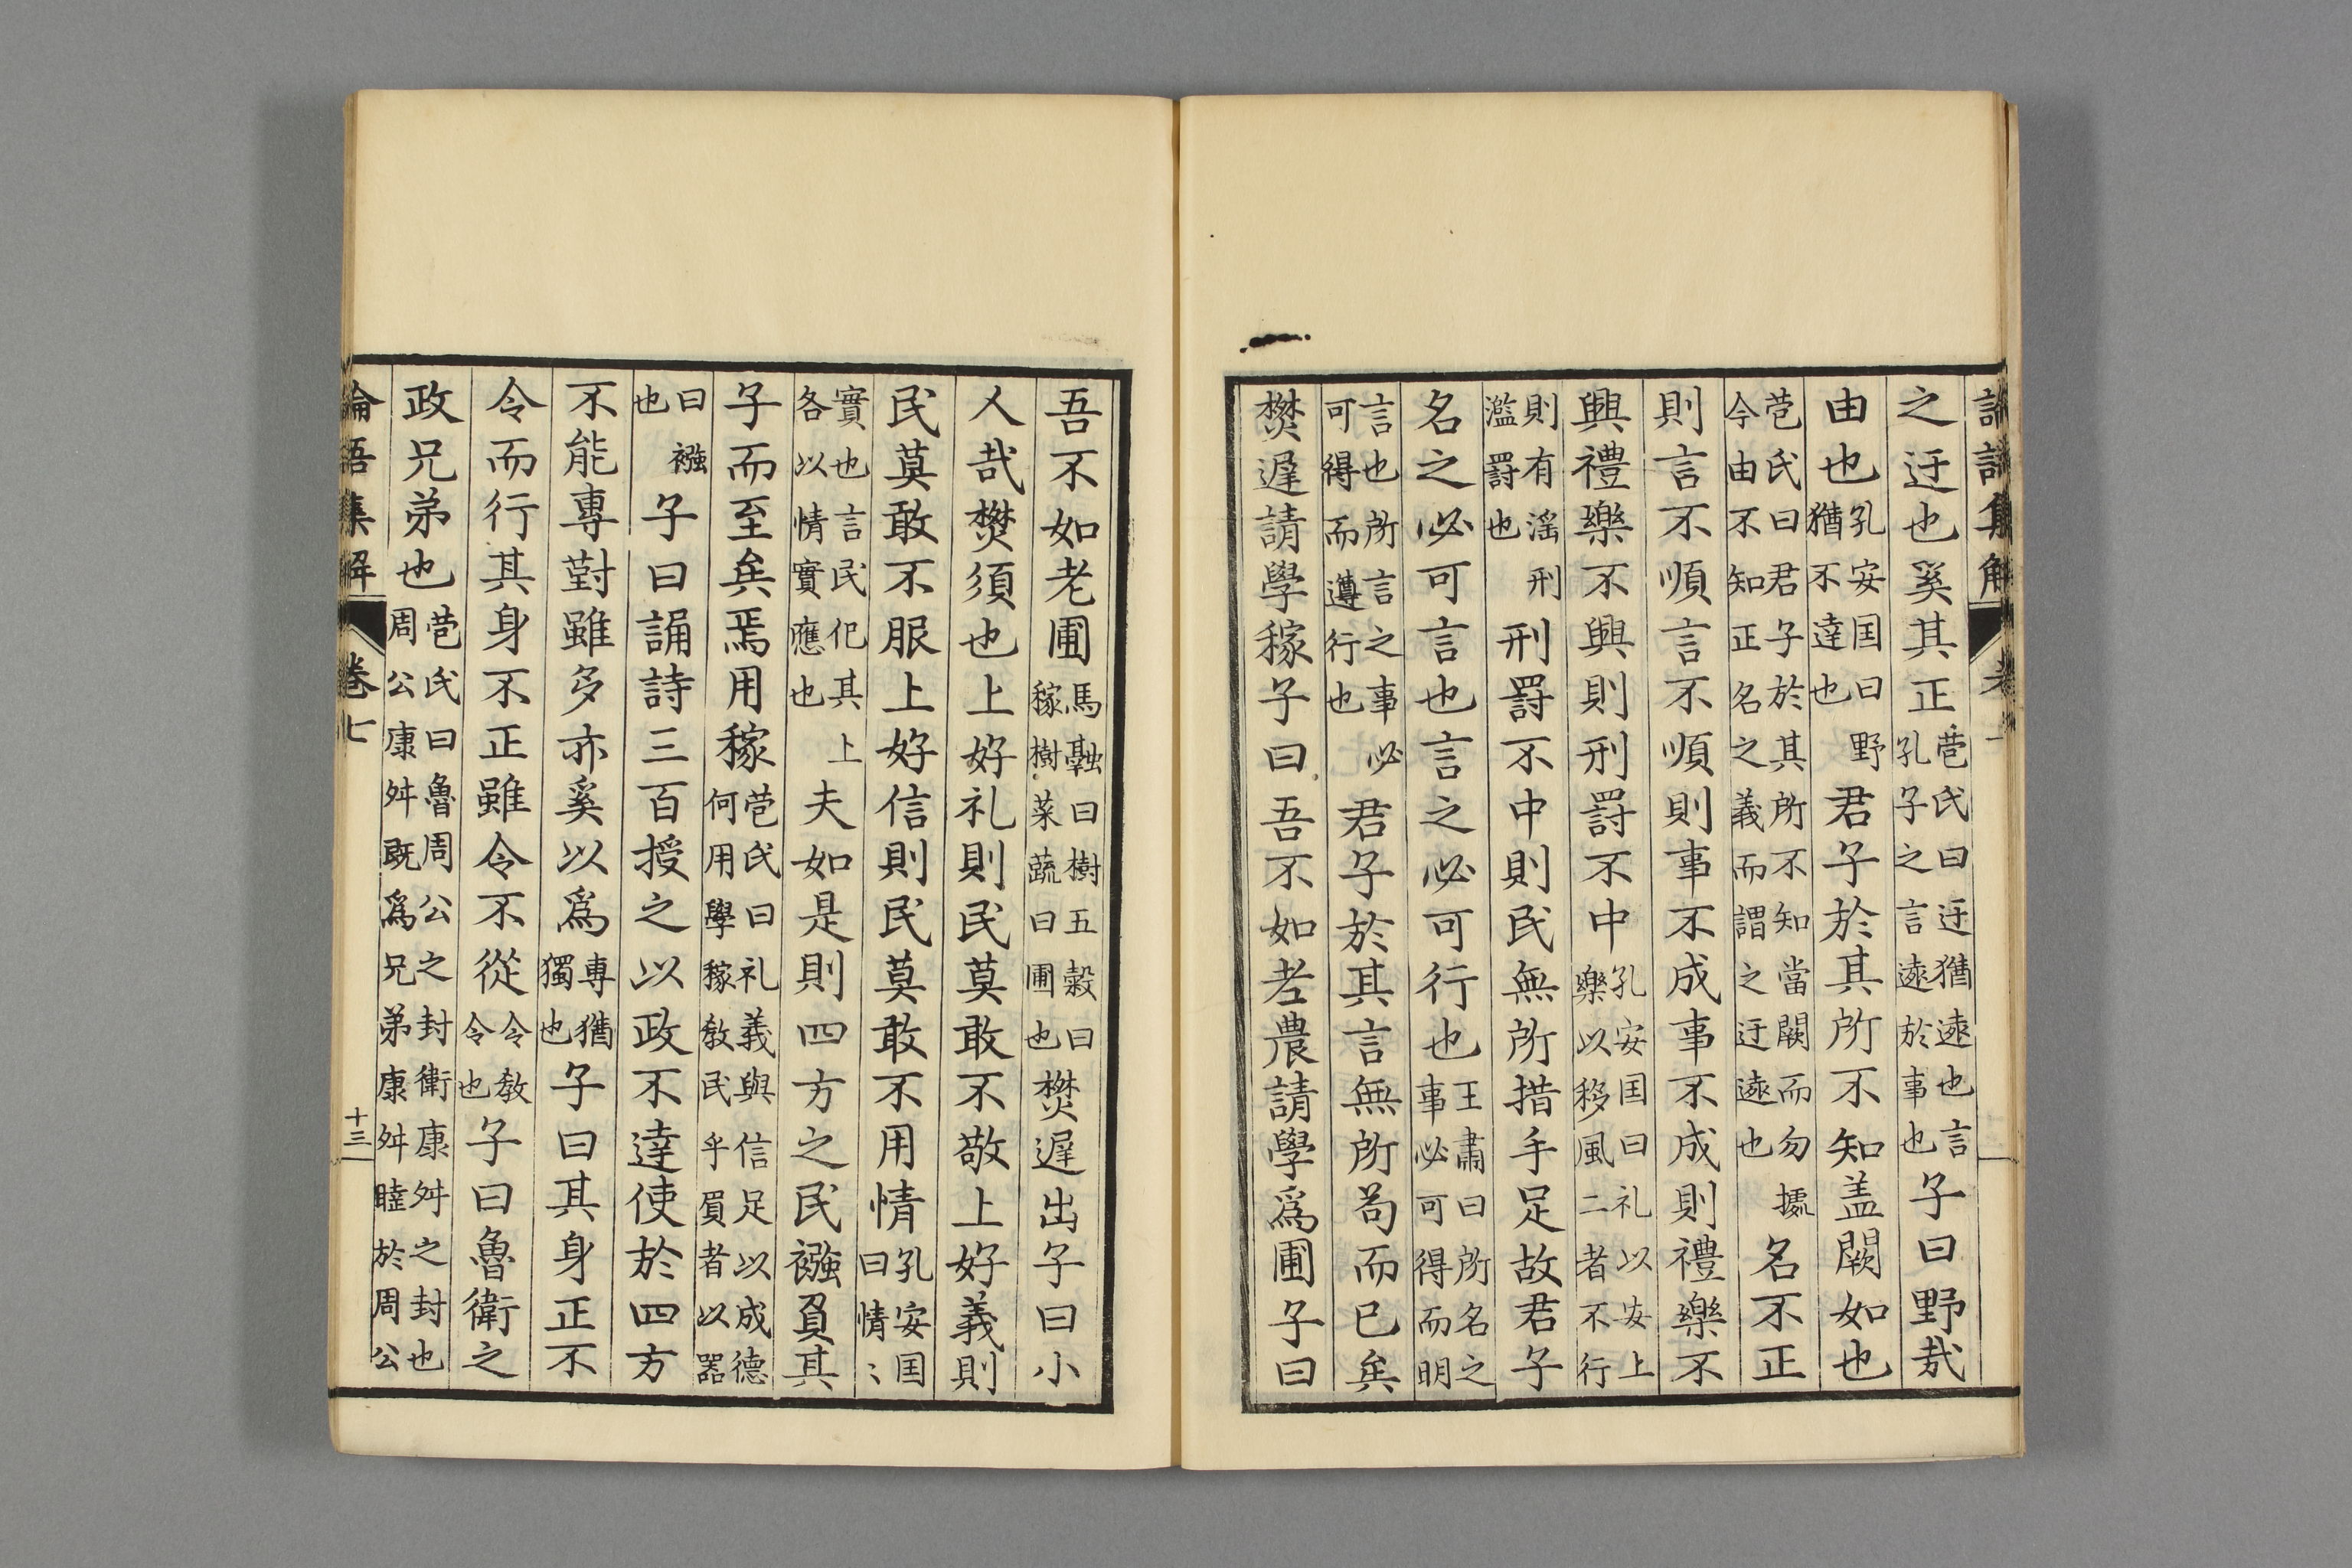 之迂也奚其正苞氏曰迂猶遠也言孔子之言遠於事也子曰野㢤
由也孔安国曰野猶不逹也君子於其所不知盖闕如也
苞氏曰君子於其所不知當闕而勿據今由不知正名之義而謂之迂遠也名不正
則言不順言不順則事不成事不成則禮樂不
興禮樂不興則刑罸不中孔安国曰礼以安上樂以移風二者不行
則有滛刑濫罸也刑罸不中則民無所措手足故君子
名之必可言也言之必可行也王肅曰所名之事必可得而明
言也所言之事必可得而遵行也君子於其言無所苟而已矣
樊遲請學稼子曰吾不如老農請學爲圃子曰
吾不如老圃馬融曰樹五穀曰稼樹菜蔬曰圃也樊遲出子曰小
人㢤樊須也上好礼則民莫敢不敬上好義則
民莫敢不服上好信則民莫敢不用情孔安国曰情〻
實也言民化其上各以情實應也夫如是則四方之民襁負其
子而至矣焉用稼苞氏曰礼義與信足以成德何用學稼敎民乎負者以器
曰襁也子曰誦詩三百授之以政不逹使於四方
不能專對雖多亦奚以爲專猶獨也子曰其身正不
令而行其身不正雖令不從令敎令也子曰魯衛之
政兄弟也苞氏曰魯周公之封衛康舛之封也周公康舛既爲兄弟康舛睦於周公
論語集解
卷七
十三